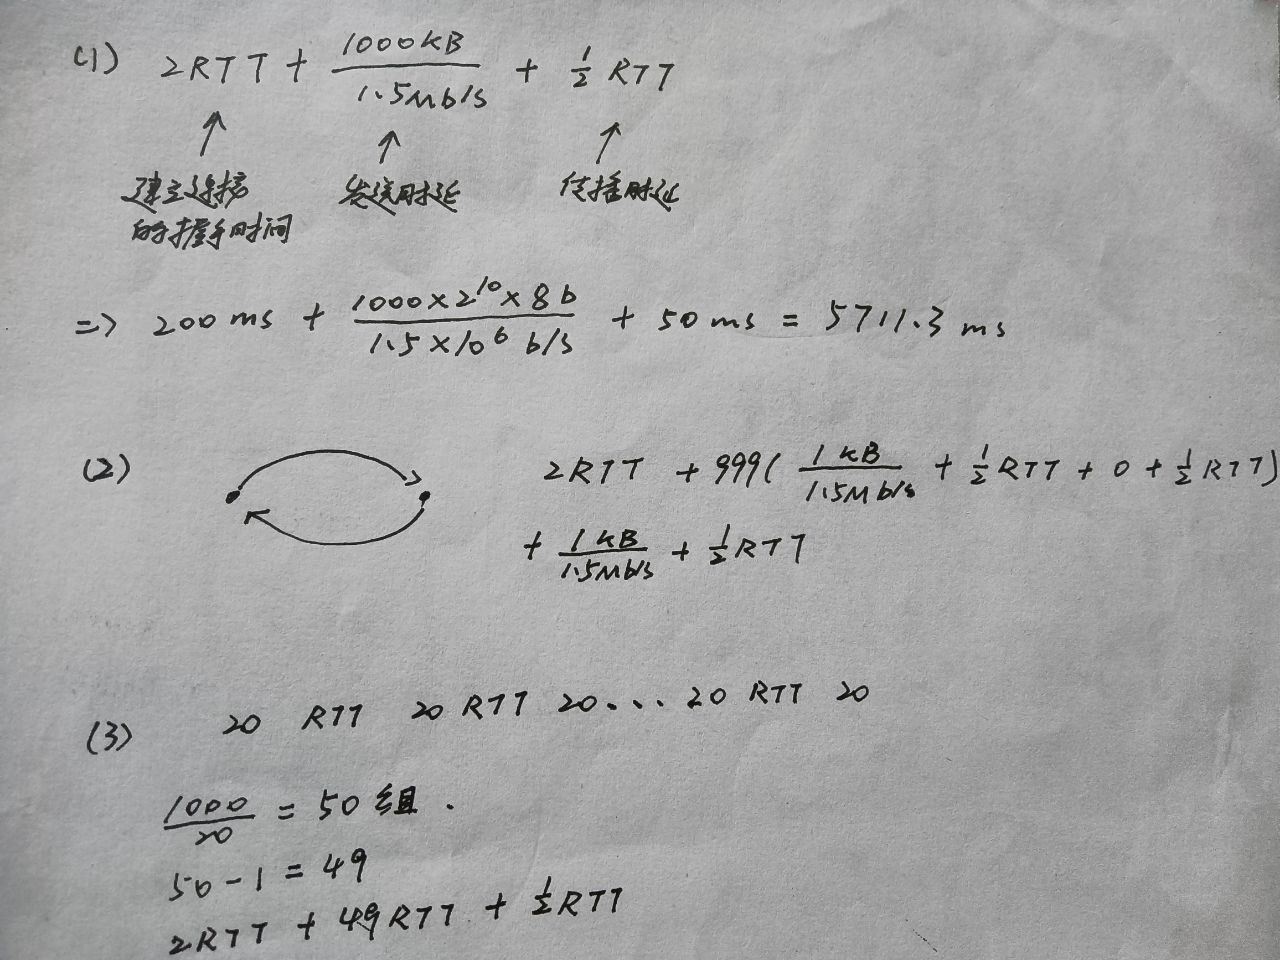 (1) 2RTT + 1000KB / 1.5Mb/s + 1/2 RTT
建立连接 发送时延 传播时延
的握手时间
=> 200ms + 1000×2^10×8b / 1.5×10^6 b/s + 50ms = 5711.3 ms
(2) 2RTT + 999( 1KB / 1.5Mb/s + 1/2 RTT + 0 + 1/2 RTT)
+ 1KB / 1.5Mb/s + 1/2 RTT
(3) 20 RTT 20 RTT 20... 20 RTT 20
1000 / 20 = 50 组.
50-1=49
2RTT + 49RTT + 1/2 RTT